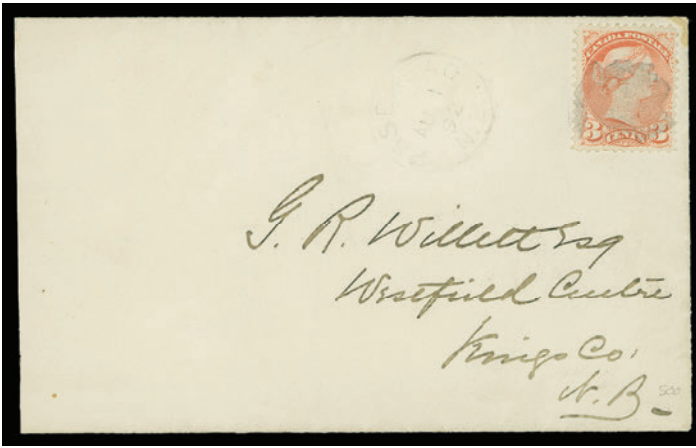 CANADA POSTAGE
3 CENTS 3
AU 1
92
G. R. Willett Esq
Westfield Centre
Kings Co.
N. B.
500